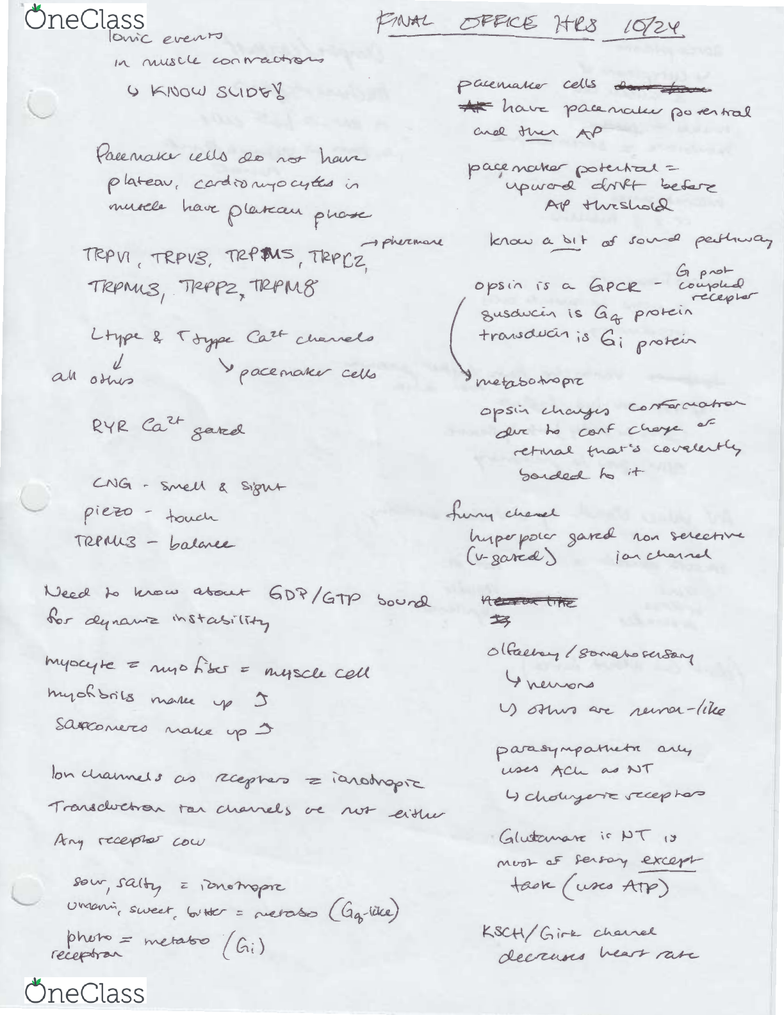 OneClass
FINAL OFFICE HRS 10/24
Ionic events
in muscle contractions
↳ KNOW SLIDE!
Pacemaker cells do not have
plateau, cardiomyocytes in
muscle have plateau phase
TRPV1, TRPV3, TRPM5, TRPC2, → pheromone
TRPML3, TRPP2, TRPM8
L type & T type Ca2+ channels
all others
pacemaker cells
RYR Ca2+ gated
CNG - smell & sight
piezo - touch
TRPML3 - balance
Need to know about GDP/GTP bound
for dynamic instability
myocyte = myofiber = muscle cell
myofibrils make up ⤴
Sarcomeres make up ⤴
Ion channels as receptors = ionotropic
Transduction ion channels are not either
Any receptor
sour, salty = ionotropic
umami, sweet, bitter = metabo (Gq-like)
photo = metabo (Gi)
reception
pacemaker cells
have pacemaker potential
and then AP
pacemaker potential =
upward drift before
AP threshold
know a bit of sound pathway
opsin is a GPCR - G prot
coupled
receptor
gusducin is Gq protein
transducin is Gi protein
→ metabotropic
opsin changes conformation
due to conf change of
retinal that's covalently
bonded to it
funny channel
hyperpolar gated non selective
(v-gated) ion channel
olfactory/somatosensory
↳ neurons
↳ others are neuron-like
parasympathetic only
uses ACh as NT
↳ cholinergic receptors
Glutamate is NT is
most of sensory except
task (uses ATP)
KSCH/Girk channel
decreases heart rate
OneClass